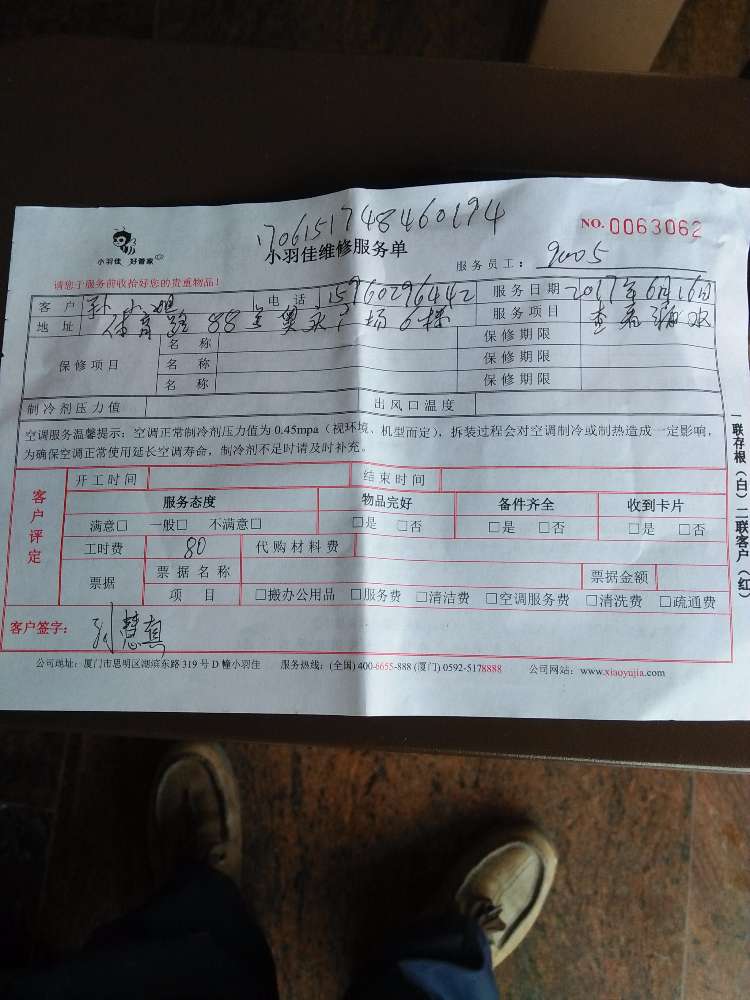 1706151748460194
小羽佳 好管家
小羽佳维修服务单
NO. 0063062
服务员工: 9005
请您于服务前收拾好您的贵重物品!
客户 孙小姐 电话 15960296442 服务日期 2017年6月16日
地址 体育路88 奥 广场6楼 服务项目 查看漏水
保修项目 名称 保修期限
名称 保修期限
名称 保修期限
制冷剂压力值 出风口温度
空调服务温馨提示:空调正常制冷剂压力值为0.45mpa(视环境、机型而定),拆装过程会对空调制冷或制热造成一定影响,
为确保空调正常使用延长空调寿命,制冷剂不足时请及时补充。
客户评定
开工时间 结束时间
服务态度 物品完好 备件齐全 收到卡片
满意□ 一般□ 不满意□ □是 □否 □是 □否 □是 □否
工时费 80 代购材料费
票据 票据名称 票据金额
项目 □搬办公用品 □服务费 □清洁费 □空调服务费 □清洗费 □疏通费
客户签字: 孙慧
公司地址:厦门市思明区湖滨东路319号D幢小羽佳 服务热线:(全国)400-6655-888 (厦门) 0592-5178888 公司网站:www.xiaoyujia.com
一联存根(白) 二联客户(红)